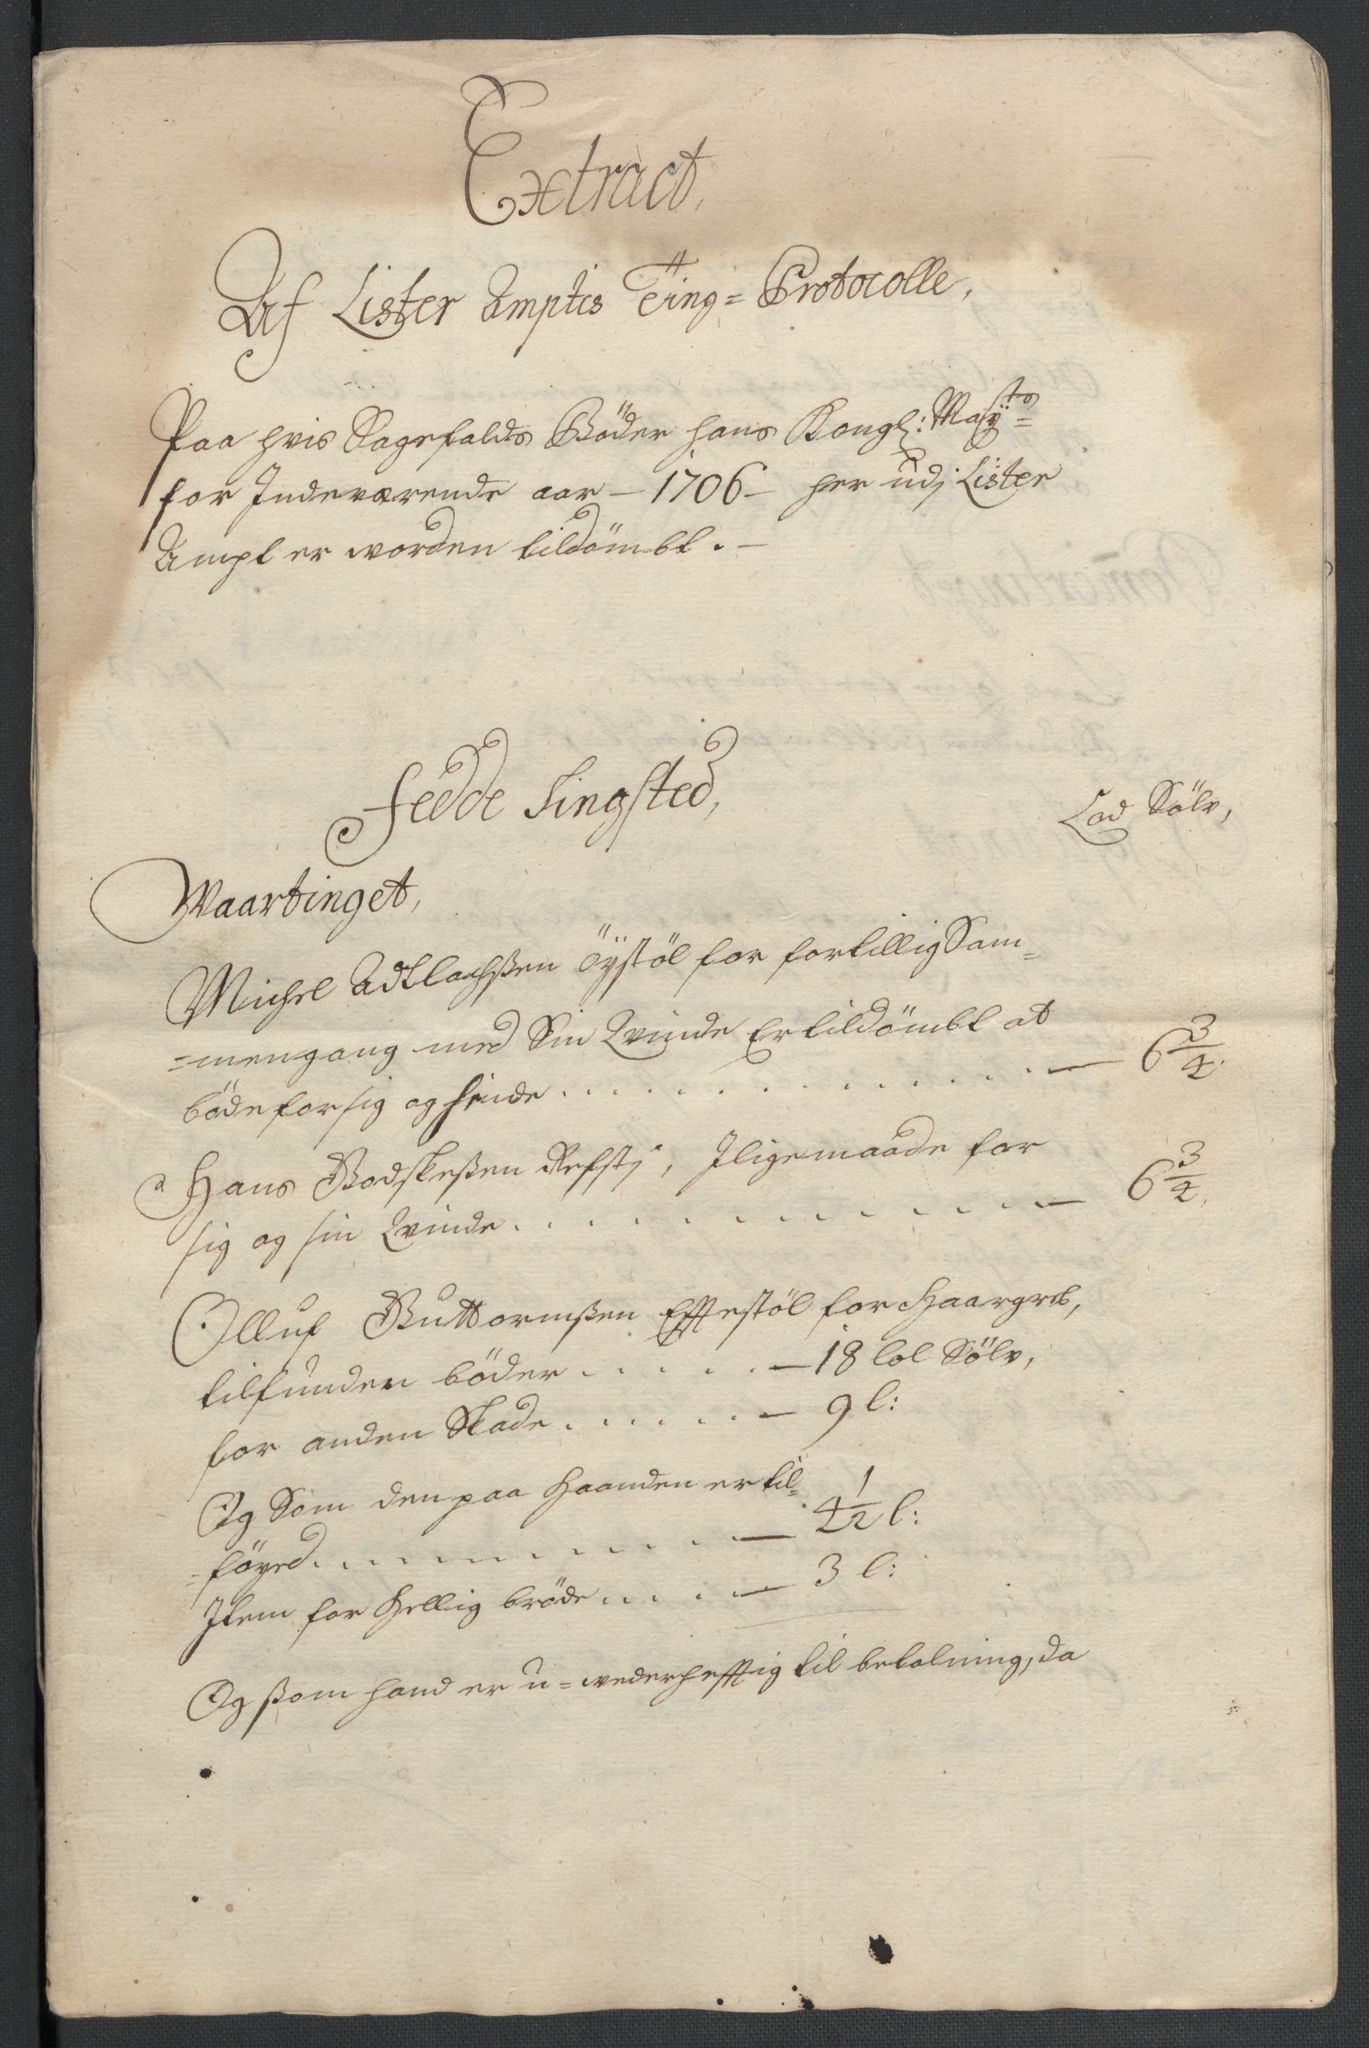 Extract,
Af Lister Ampts Ting= Protocolle,
Paa hvis Sagefalds Böder hans Kongl: Mayts=
for Indeværende aar – 1706 – her udj Lister
Ampt er worden tildömbt. –
Fedde Tingsted,
Lod Sölv,
Waartinget,
Michel Adtlachßen Öystöl for fortillig Sam=
=mengang med Sin Qvinde Er tildömbt at
böde for sig og hinde . . . . . . . . . . . . — 6 3/4.
Hans Bodskeßen Refstj, Jligemaade for
sig og sin Qvinde . . . . . . . . . . . . — 6 3/4.
Olluf Guttormßen Effestöl for Haargreb,
tilfunden böder . . . . . — 18 lot Sölv,
for anden Skade . . . . . — 9 l:
Og Som den paa Haanden er til=
=föyed . . . . . . . . . . . — 4 1/2 l:
Item for Hellig bröde . . . . — 3 l:
Og ßom hand er u=wederhefftig til betalning, da